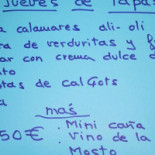 Jueves de Tapas
a calamares ali-oli
ra de verduritas y
ar con crema dulce d
to
tas de calçots
a
más
50€ : Mini caña
: Vino de la
Mosto